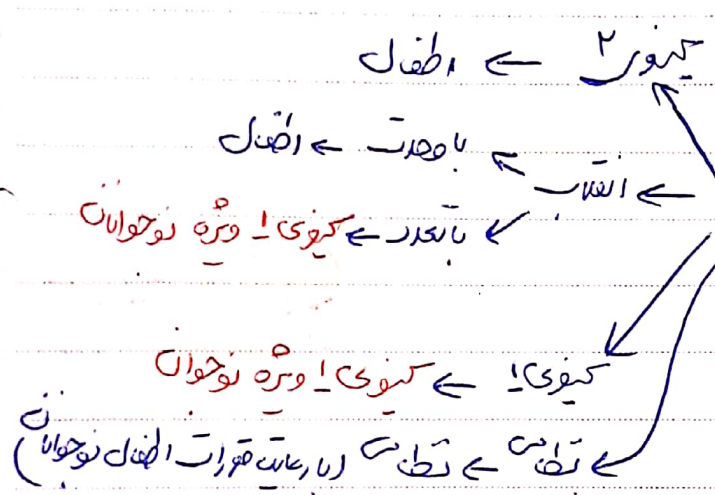 کیفری ۲ ← اطفال
با وحدت ← اطفال
← انقلاب
با تعدد ← کیفری ۱ ویژه نوجوانان
کیفری ۱ ← کیفری ۱ ویژه نوجوان
نظامی ← نظامی (با رعایت مقررات اطفال نوجوانان)